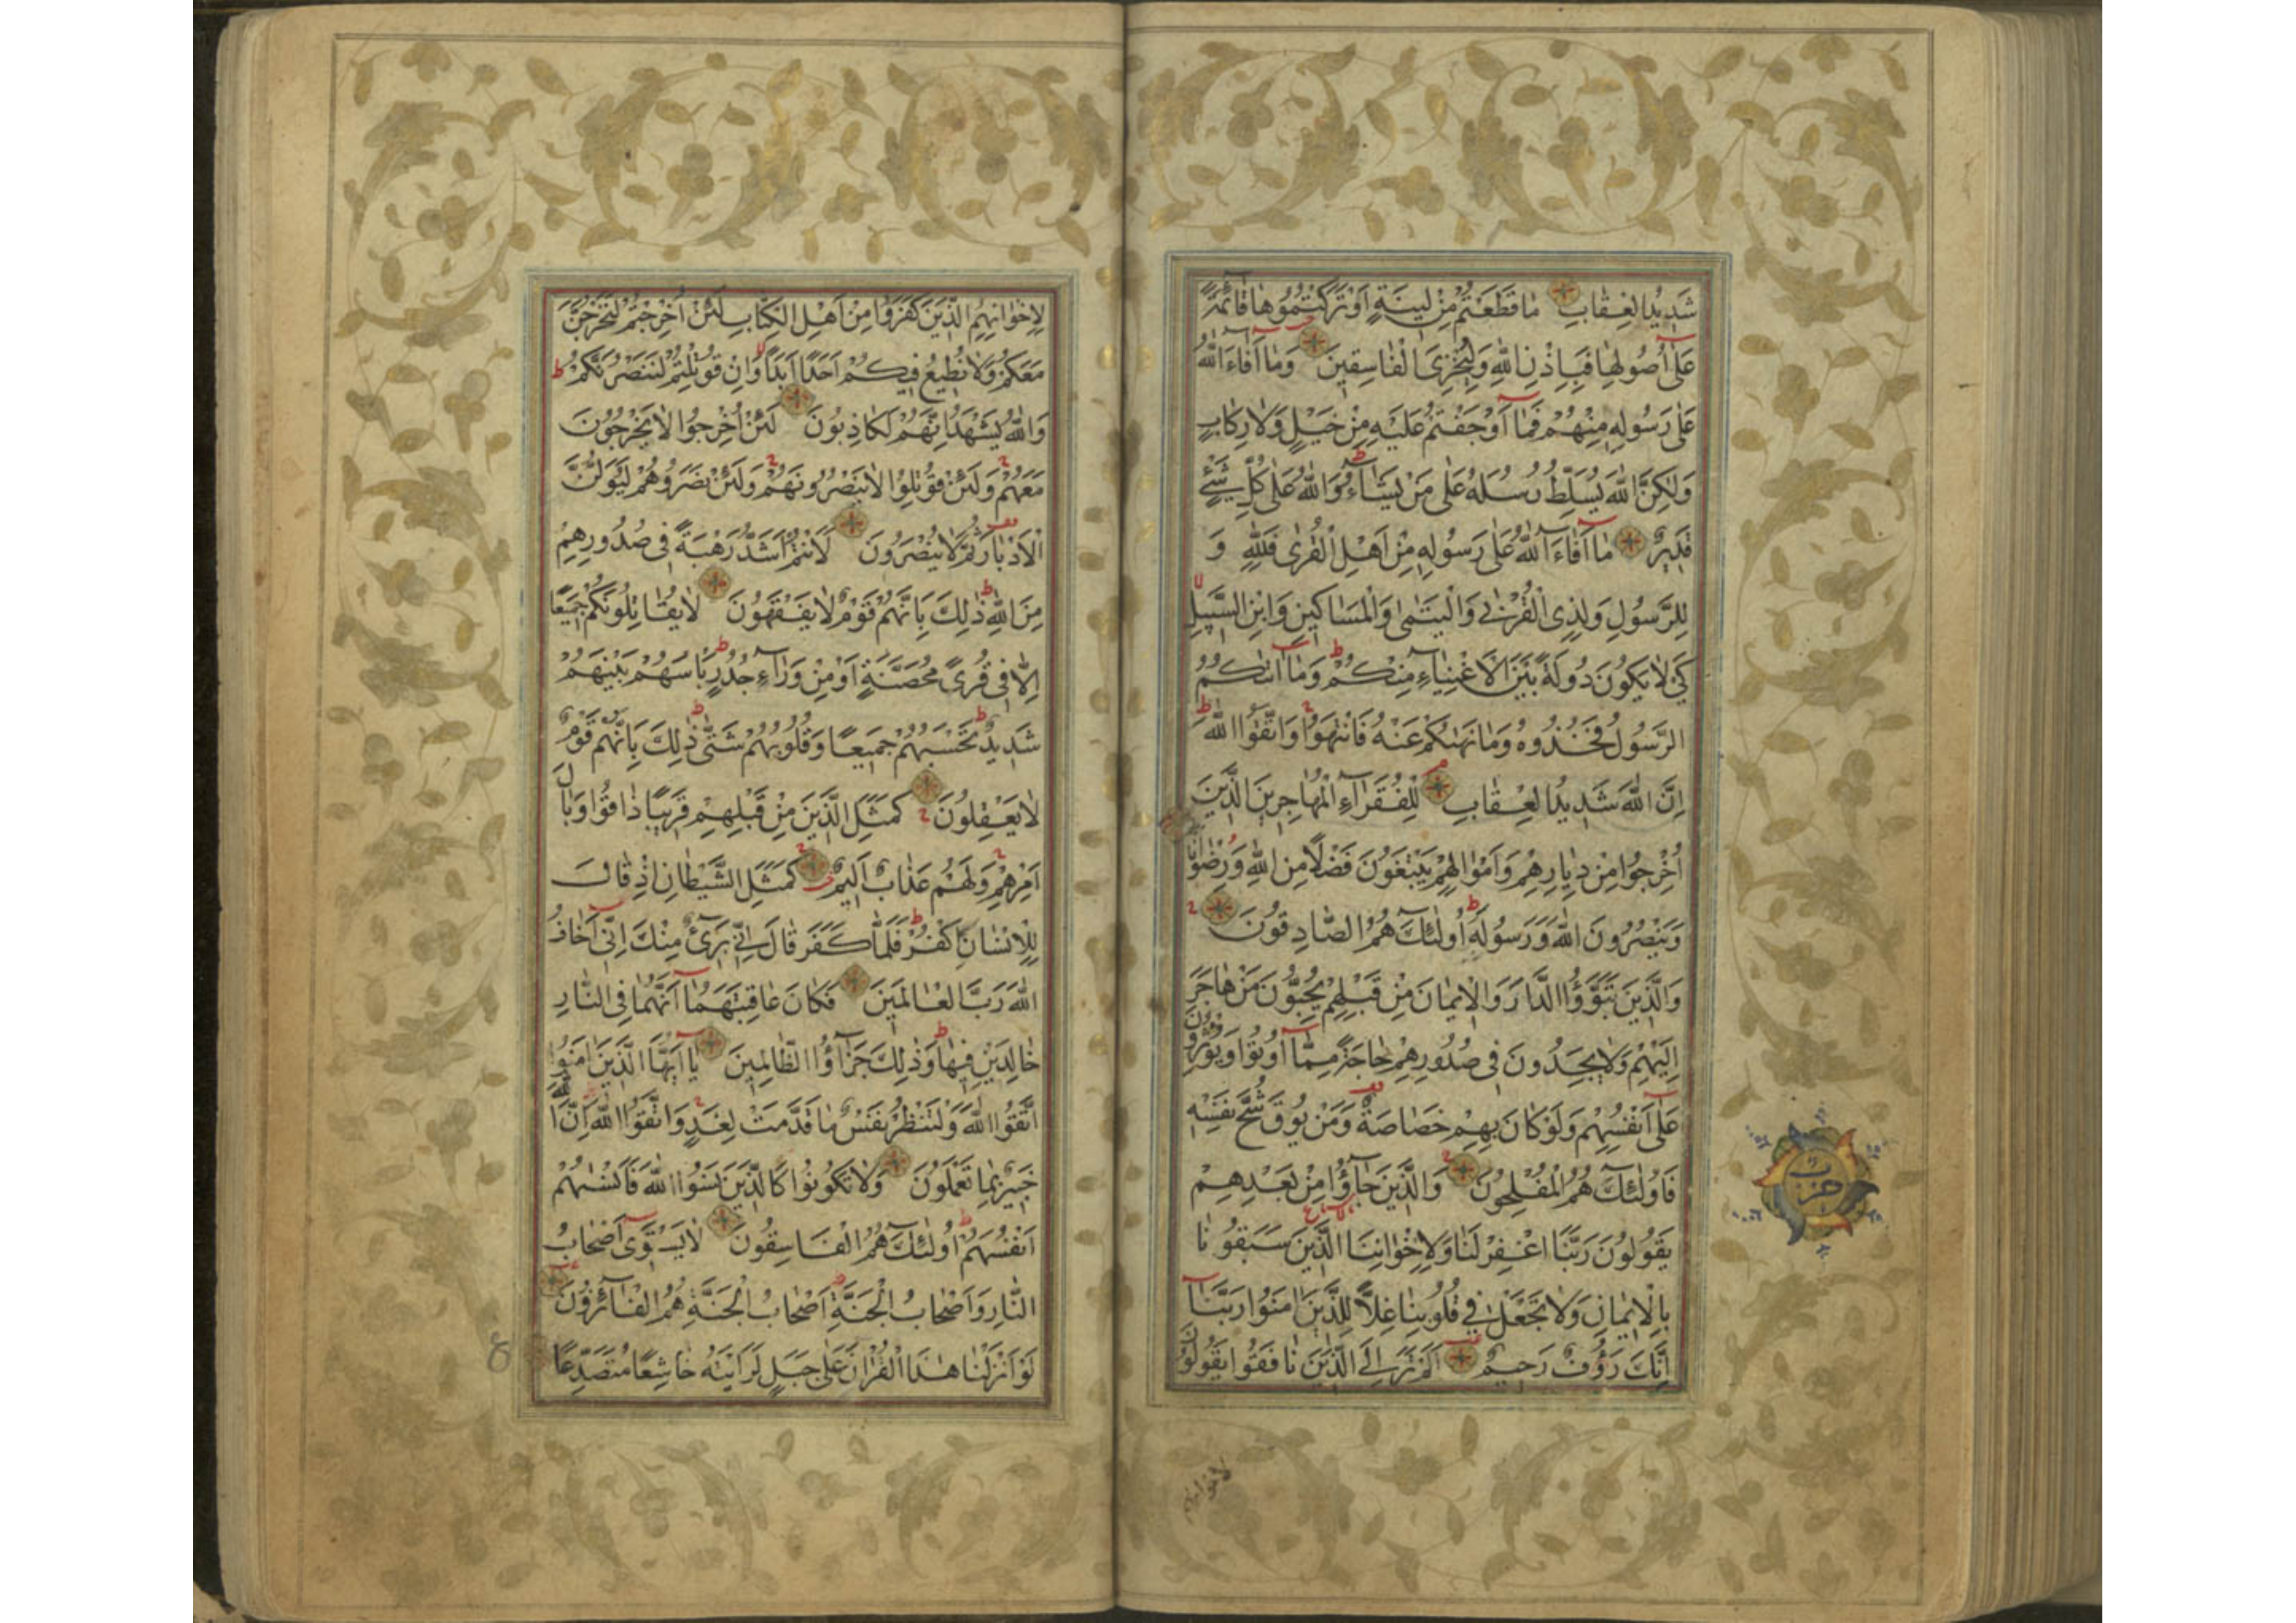 شَدِيدُ الْعِقَابِ مَا قَطَعْتُمْ مِنْ لِينَةٍ أَوْ تَرَكْتُمُوهَا قَائِمَةً
عَلَىٰ أُصُولِهَا فَبِإِذْنِ اللَّهِ وَلِيُخْزِيَ الْفَاسِقِينَ وَمَا أَفَاءَ اللَّهُ
عَلَىٰ رَسُولِهِ مِنْهُمْ فَمَا أَوْجَفْتُمْ عَلَيْهِ مِنْ خَيْلٍ وَلَا رِكَابٍ
وَلَكِنَّ اللَّهَ يُسَلِّطُ رُسُلَهُ عَلَىٰ مَنْ يَشَاءُ وَاللَّهُ عَلَىٰ كُلِّ شَيْءٍ
قَدِيرٌ مَا أَفَاءَ اللَّهُ عَلَىٰ رَسُولِهِ مِنْ أَهْلِ الْقُرَىٰ فَلِلَّهِ وَ
لِلرَّسُولِ وَلِذِي الْقُرْبَىٰ وَالْيَتَمَىٰ وَالْمَسَاكِينِ وَابْنِ السَّبِيلِ
كَيْ لَا يَكُونَ دُولَةً بَيْنَ الْأَغْنِيَاءِ مِنْكُمْ وَمَا اٰتٰكُمُ
الرَّسُولُ فَخُذُوهُ وَمَا نَهٰىكُمْ عَنْهُ فَانْتَهُوا وَاتَّقُوا اللَّهَ
إِنَّ اللَّهَ شَدِيدُ الْعِقَابِ لِلْفُقَرَاءِ الْمُهَاجِرِينَ الَّذِينَ
أُخْرِجُوا مِنْ دِيَارِهِمْ وَأَمْوَالِهِمْ يَبْتَغُونَ فَضْلًا مِنَ اللَّهِ وَرِضْوَانًا
وَيَنْصُرُونَ اللَّهَ وَرَسُولَهُ أُولَئِكَ هُمُ الصَّادِقُونَ
وَالَّذِينَ تَبَوَّؤُا الدَّارَ وَالْإِيمَانَ مِنْ قَبْلِهِمْ يُحِبُّونَ مَنْ هَاجَرَ
إِلَيْهِمْ وَلَا يَجِدُونَ فِي صُدُورِهِمْ حَاجَةً مِمَّا أُوتُوا وَيُؤْثِرُونَ
عَلَىٰ أَنْفُسِهِمْ وَلَوْ كَانَ بِهِمْ خَصَاصَةٌ وَمَنْ يُوقَ شُحَّ نَفْسِهِ
فَأُولَئِكَ هُمُ الْمُفْلِحُونَ وَالَّذِينَ جَاؤُا مِنْ بَعْدِهِمْ
يَقُولُونَ رَبَّنَا اغْفِرْ لَنَا وَلِإِخْوَانِنَا الَّذِينَ سَبَقُونَا
بِالْإِيمَانِ وَلَا تَجْعَلْ فِي قُلُوبِنَا غِلًّا لِلَّذِينَ اٰمَنُوا رَبَّنَا
إِنَّكَ رَؤُفٌ رَحِيمٌ أَلَمْ تَرَ إِلَى الَّذِينَ نَافَقُوا يَقُولُونَ
حزب
لاخوانهم
لِإِخْوَانِهِمُ الَّذِينَ كَفَرُوا مِنْ أَهْلِ الْكِتَابِ لَئِنْ أُخْرِجْتُمْ لَنَخْرُجَنَّ
مَعَكُمْ وَلَا نُطِيعُ فِيكُمْ أَحَدًا أَبَدًا وَإِنْ قُوتِلْتُمْ لَنَنْصُرَنَّكُمْ
وَاللَّهُ يَشْهَدُ إِنَّهُمْ لَكَاذِبُونَ لَئِنْ أُخْرِجُوا لَا يَخْرُجُونَ
مَعَهُمْ وَلَئِنْ قُوتِلُوا لَا يَنْصُرُونَهُمْ وَلَئِنْ نَصَرُوهُمْ لَيُوَلُّنَّ
الْأَدْبَارَ ثُمَّ لَا يُنْصَرُونَ لَأَنْتُمْ أَشَدُّ رَهْبَةً فِي صُدُورِهِمْ
مِنَ اللَّهِ ذَلِكَ بِأَنَّهُمْ قَوْمٌ لَا يَفْقَهُونَ لَا يُقَاتِلُونَكُمْ جَمِيعًا
إِلَّا فِي قُرًى مُحَصَّنَةٍ أَوْ مِنْ وَرَاءِ جُدُرٍ بَأْسُهُمْ بَيْنَهُمْ
شَدِيدٌ تَحْسَبُهُمْ جَمِيعًا وَقُلُوبُهُمْ شَتَّىٰ ذَلِكَ بِأَنَّهُمْ قَوْمٌ
لَا يَعْقِلُونَ كَمَثَلِ الَّذِينَ مِنْ قَبْلِهِمْ قَرِيبًا ذَاقُوا وَبَالَ
أَمْرِهِمْ وَلَهُمْ عَذَابٌ أَلِيمٌ كَمَثَلِ الشَّيْطَانِ إِذْ قَالَ
لِلْإِنْسَانِ اكْفُرْ فَلَمَّا كَفَرَ قَالَ إِنِّي بَرِيءٌ مِنْكَ إِنِّي أَخَافُ
اللَّهَ رَبَّ الْعَالَمِينَ فَكَانَ عَاقِبَتَهُمَا أَنَّهُمَا فِي النَّارِ
خَالِدَيْنِ فِيهَا وَذَلِكَ جَزَاؤُا الظَّالِمِينَ يَا أَيُّهَا الَّذِينَ اٰمَنُوا
اتَّقُوا اللَّهَ وَلْتَنْظُرْ نَفْسٌ مَا قَدَّمَتْ لِغَدٍ وَاتَّقُوا اللَّهَ إِنَّ اللَّهَ
خَبِيرٌ بِمَا تَعْمَلُونَ وَلَا تَكُونُوا كَالَّذِينَ نَسُوا اللَّهَ فَأَنْسٰىهُمْ
أَنْفُسَهُمْ أُولَئِكَ هُمُ الْفَاسِقُونَ لَا يَسْتَوِي أَصْحَابُ
النَّارِ وَأَصْحَابُ الْجَنَّةِ أَصْحَابُ الْجَنَّةِ هُمُ الْفَائِزُونَ
لَوْ أَنْزَلْنَا هٰذَا الْقُرْاٰنَ عَلَىٰ جَبَلٍ لَرَأَيْتَهُ خَاشِعًا مُتَصَدِّعًا